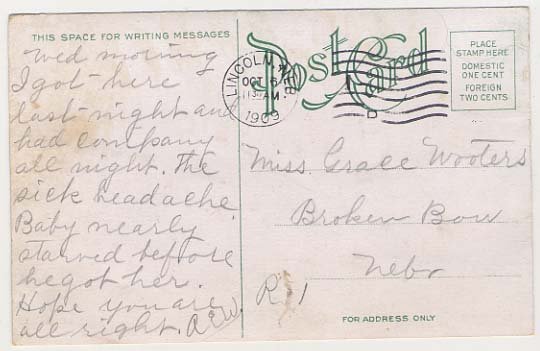 THIS SPACE FOR WRITING MESSAGES
Wed morning
I got here
last night and
had company
all night. The
sick headache.
Baby nearly
starved before
he got her.
Hope you are
all right. A.E.W.
Post Card
LINCOLN, NEBR.
OCT 6
1130 AM
1909
D
PLACE
STAMP HERE
DOMESTIC
ONE CENT
FOREIGN
TWO CENTS
Miss Grace Wooters
Broken Bow
Nebr
R 1
FOR ADDRESS ONLY